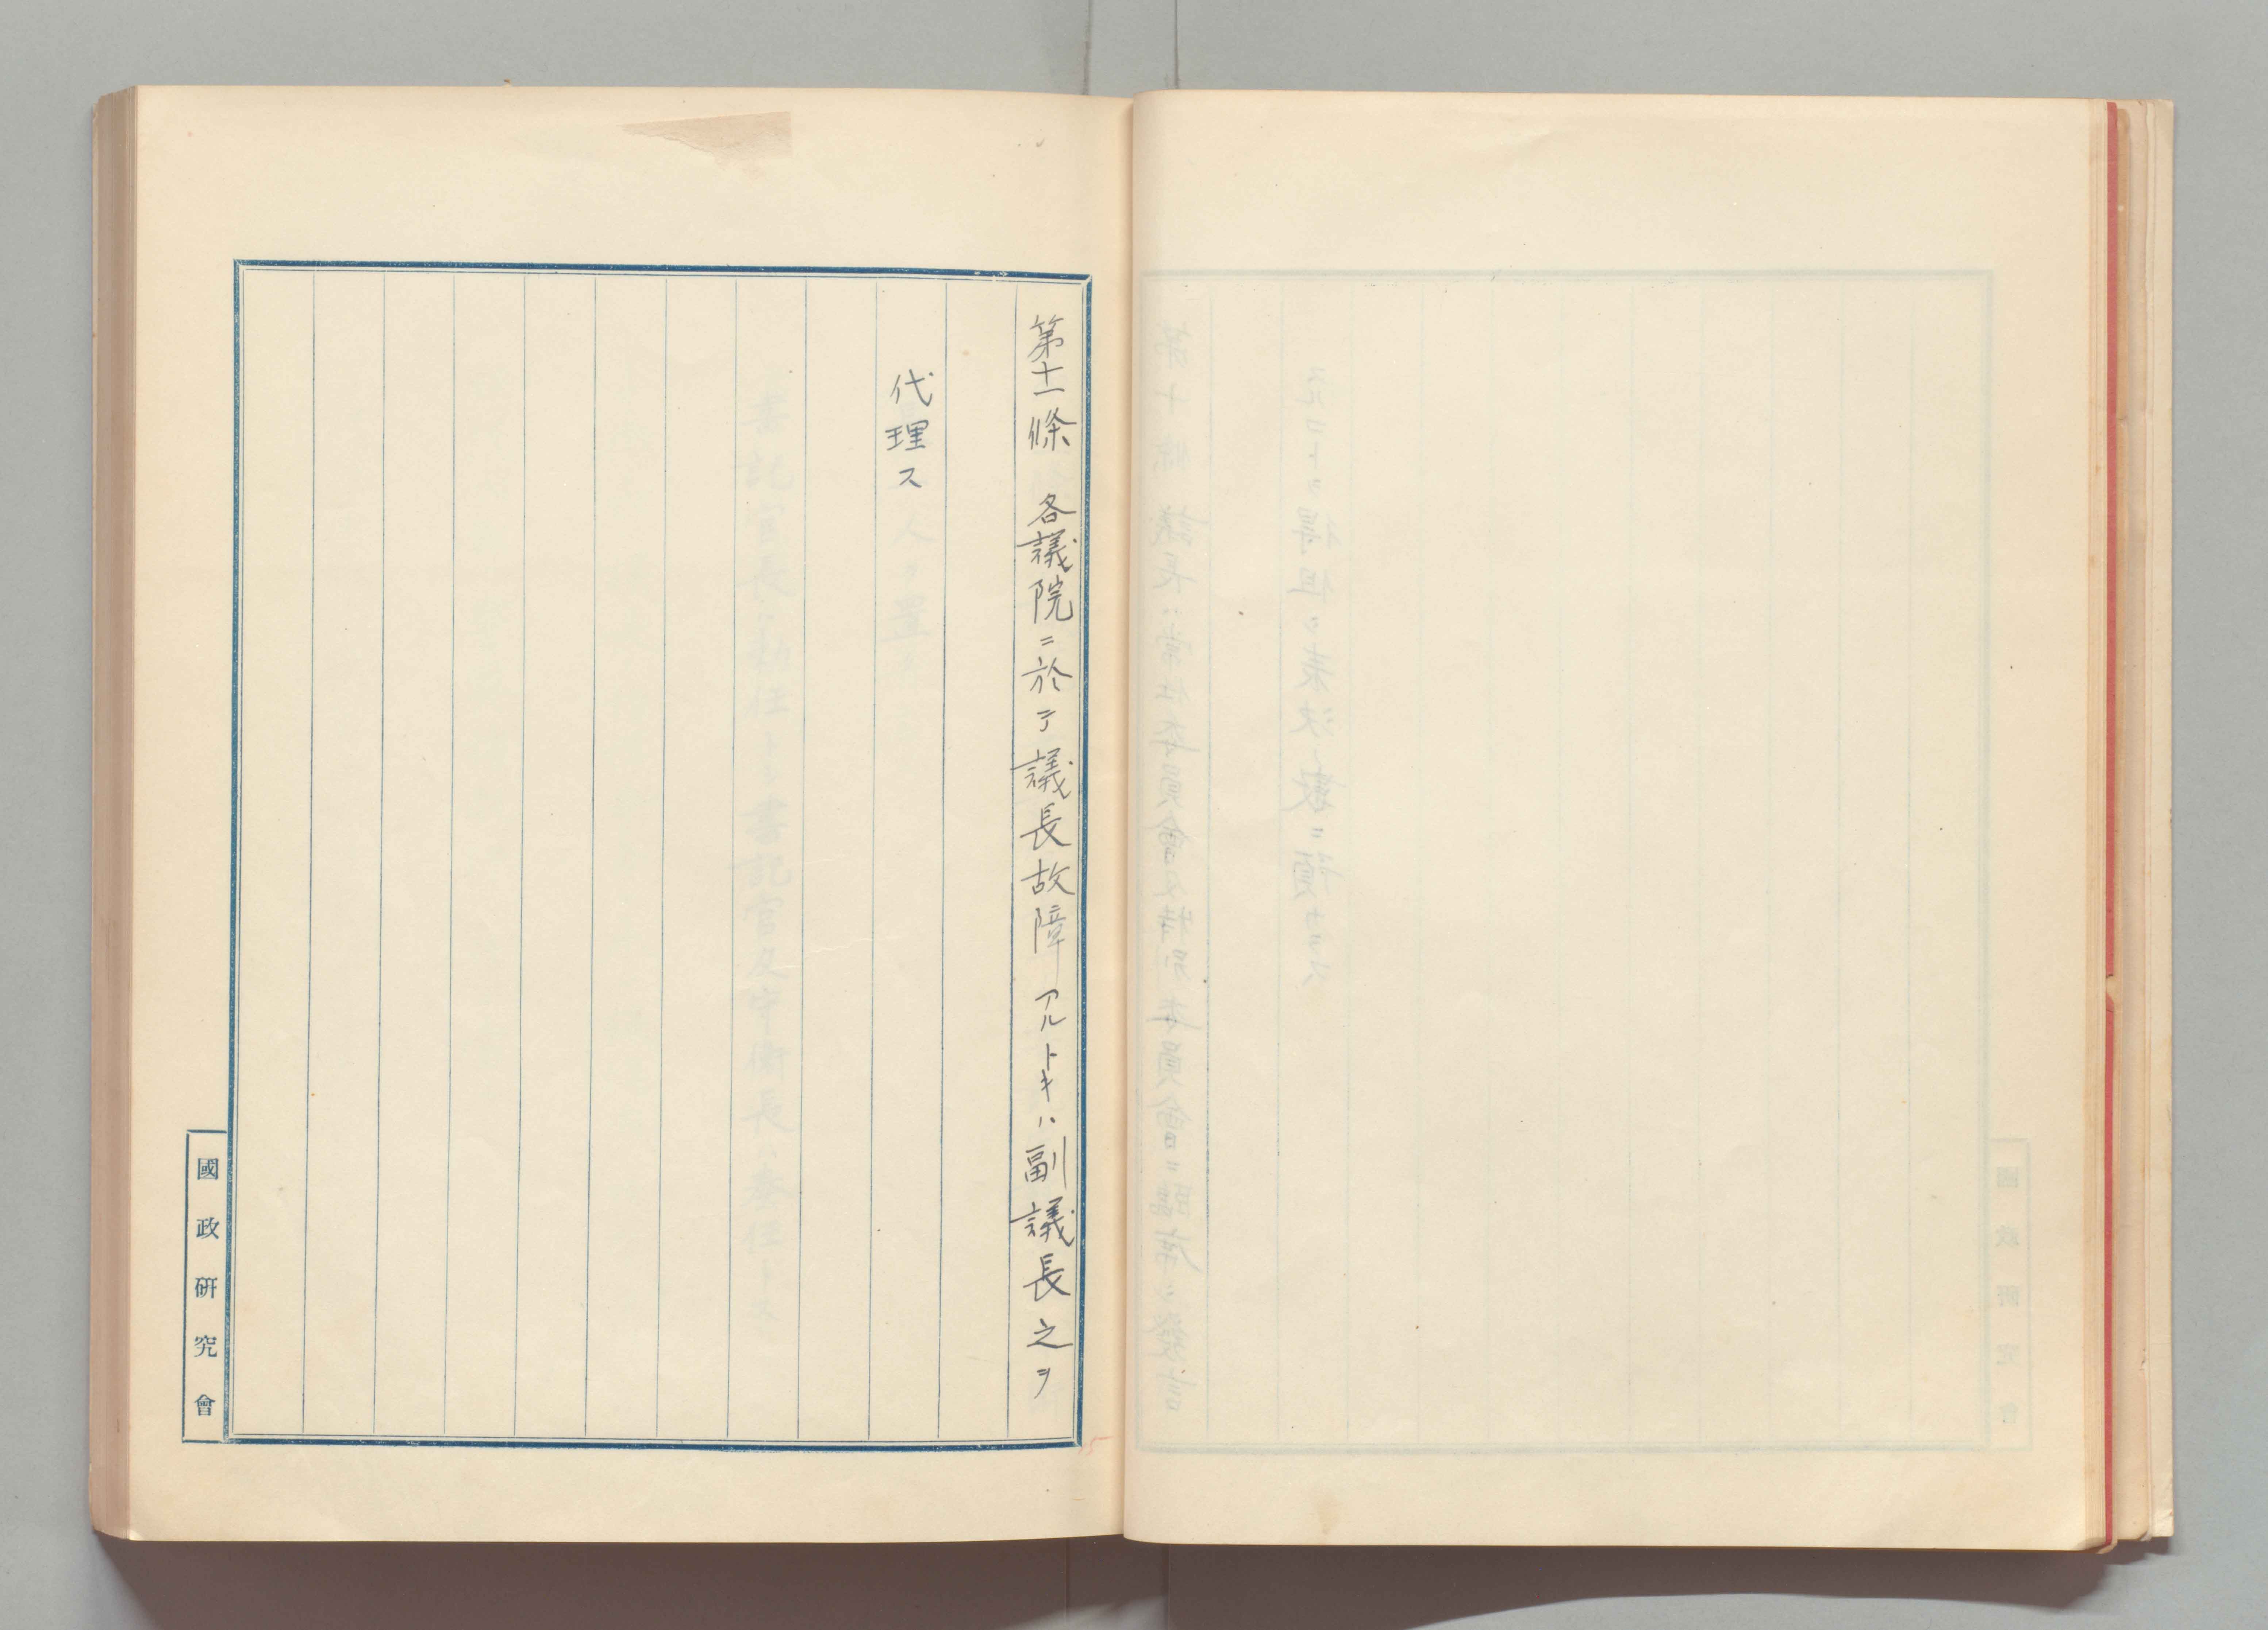 第十一條　各議院ニ於テ議長故障アルトキハ副議長之ヲ
代理ス
國政研究會